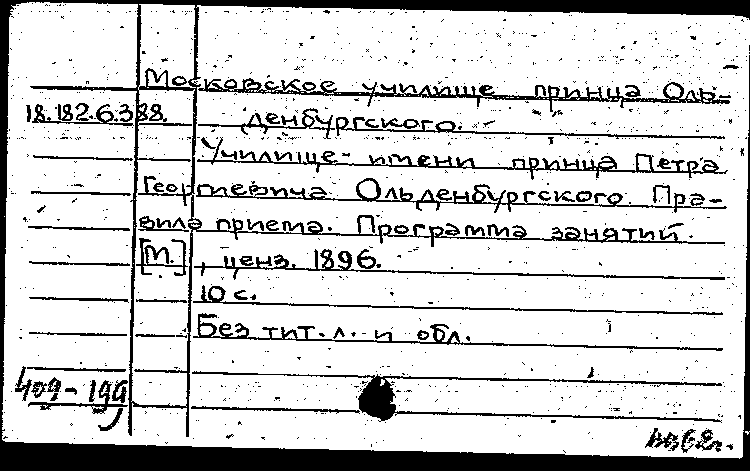 Московское училище принца Оль-
18.182.6.388. денбургского.
Училище имени принца Петра
Георгиевича Ольденбургского Пра-
вила приема. Программа занятий.
[М.], ценз. 1896.
10 с.
Без тит. л. и обл.
409-199